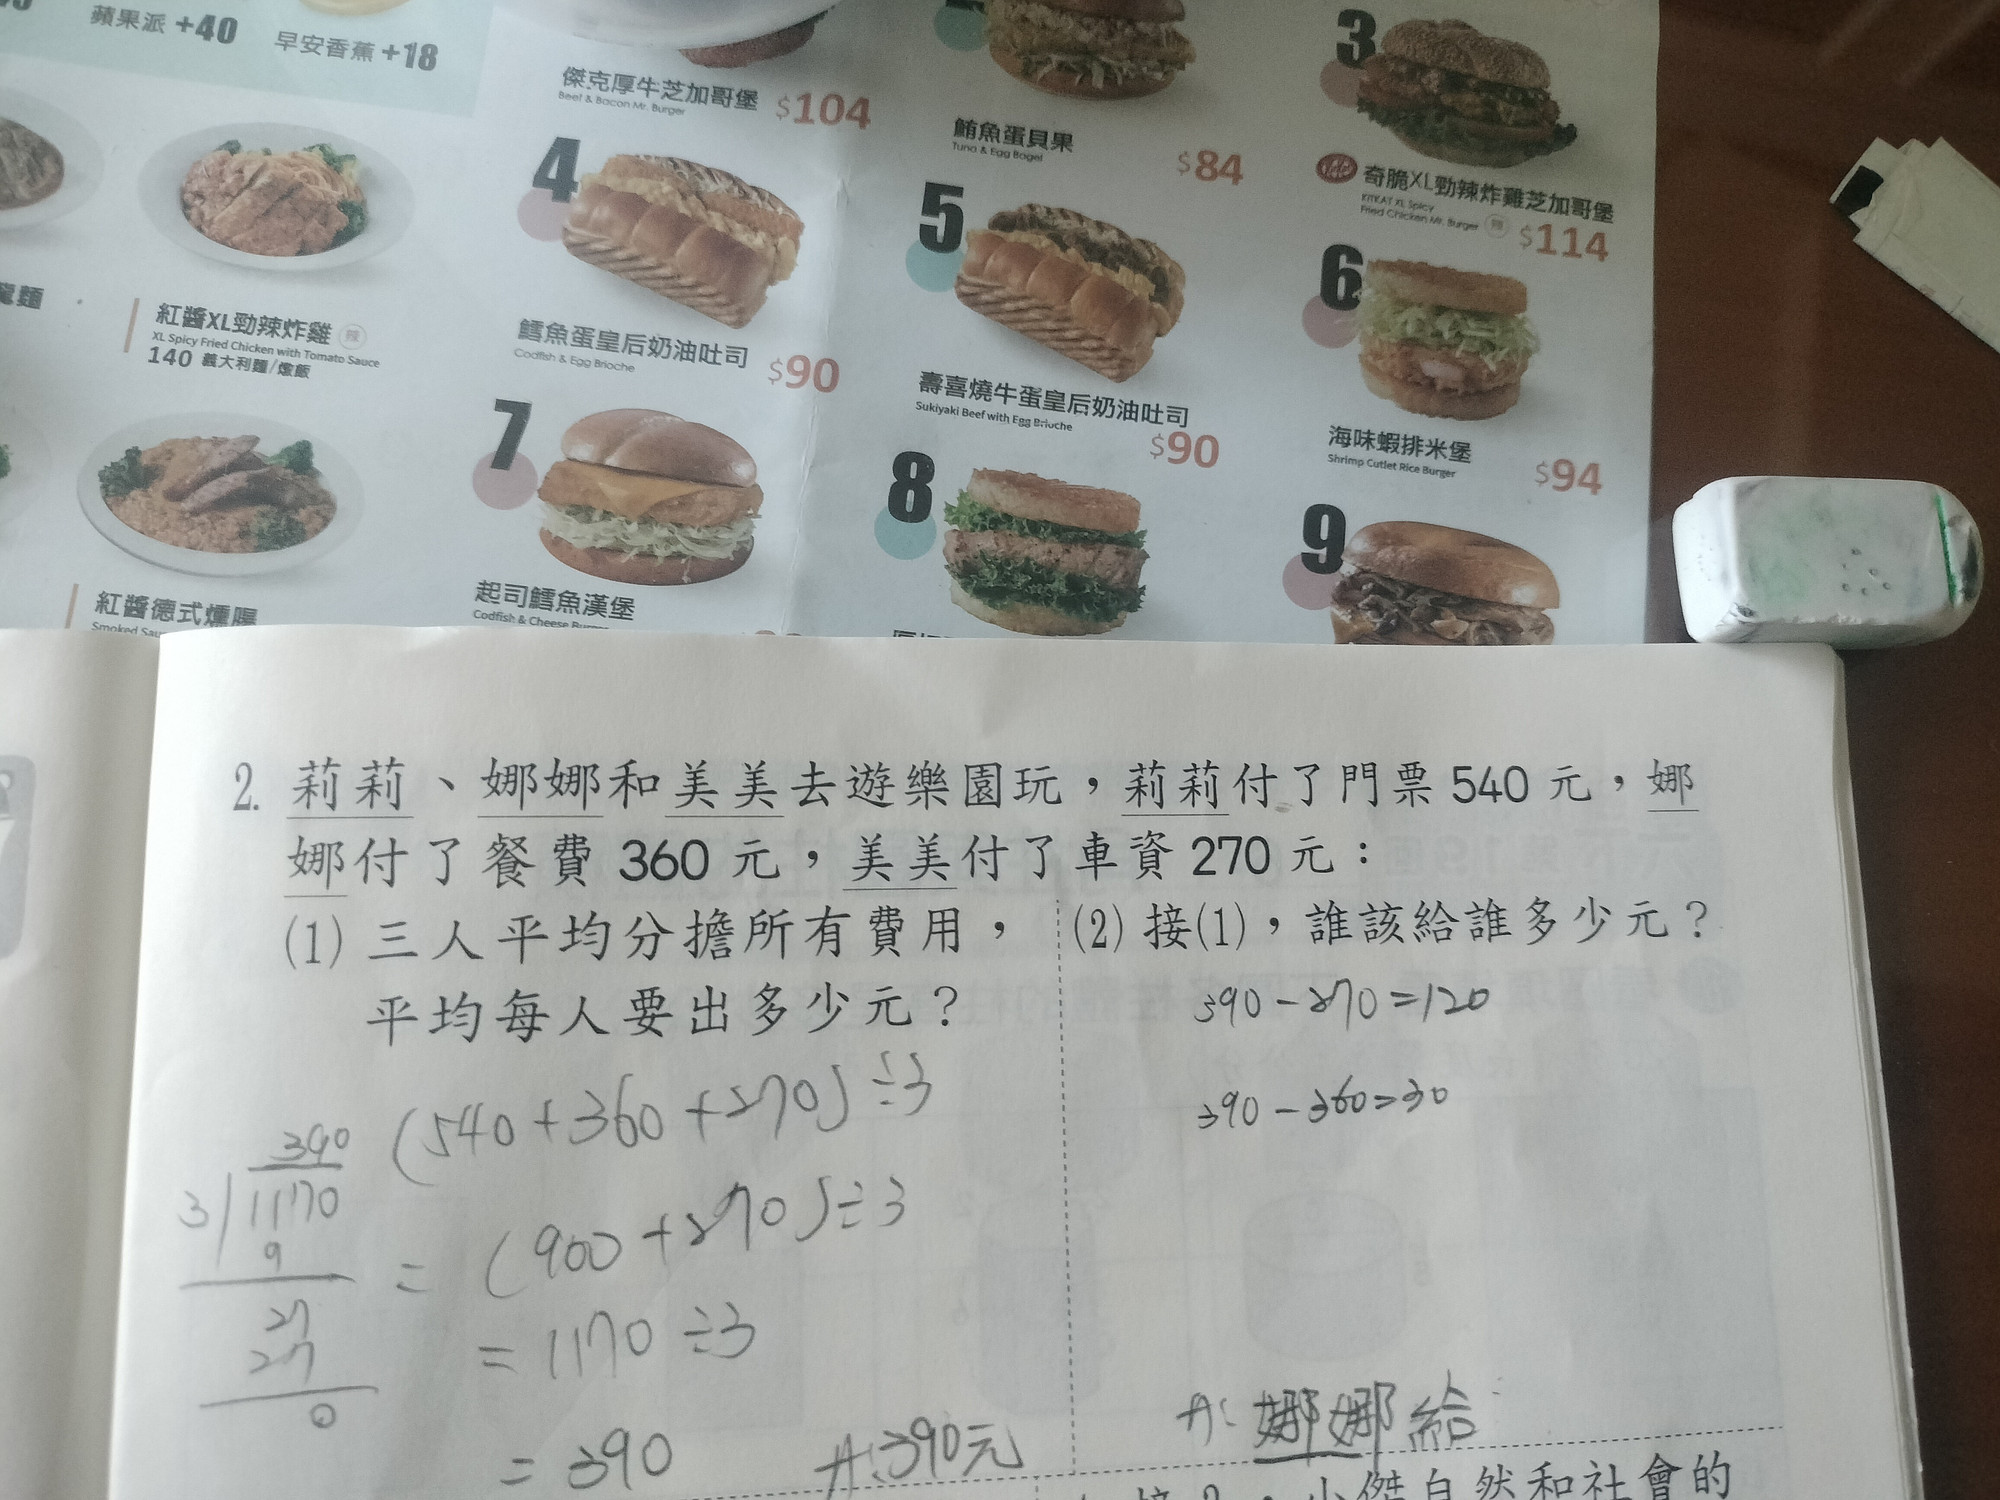 蘋果派 +40
早安香蕉 +18
傑克厚牛芝加哥堡
Beef & Bacon Mr. Burger
$104
鮪魚蛋貝果
Tuna & Egg Bagel
$84
3
奇脆XL勁辣炸雞芝加哥堡
KITKAT XL Spicy
Fried Chicken Mr. Burger 辣
$114
龍麵
紅醬XL勁辣炸雞 辣
XL Spicy Fried Chicken with Tomato Sauce
140 義大利麵/燉飯
4
鱈魚蛋皇后奶油吐司
Codfish & Egg Brioche
$90
5
壽喜燒牛蛋皇后奶油吐司
Sukiyaki Beef with Egg Brioche
$90
6
海味蝦排米堡
Shrimp Cutlet Rice Burger
$94
紅醬德式燻腸
7
起司鱈魚漢堡
Codfish & Cheese
8
9
2. 莉莉、娜娜和美美去遊樂園玩，莉莉付了門票 540 元，娜
娜付了餐費 360 元，美美付了車資 270 元：
(1) 三人平均分擔所有費用，
平均每人要出多少元？
(540+360+270)÷3
=(900+270)÷3
=1170÷3
=390
A:390元
390
3 1170
9
27
27
0
(2) 接(1)，誰該給誰多少元？
390-270=120
390-360=30
A:娜娜給
小傑自然和社會的